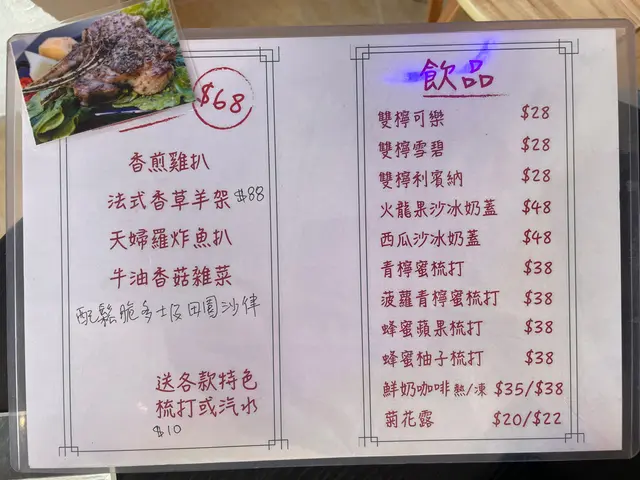 $68
香煎雞扒
法式香草羊架 $88
天婦羅炸魚扒
牛油香菇雜菜
配鬆脆多士及田園沙律
送各款特色
梳打或汽水
$10
飲品
雙檸可樂 $28
雙檸雪碧 $28
雙檸利賓納 $28
火龍果沙冰奶蓋 $48
西瓜沙冰奶蓋 $48
青檸蜜梳打 $38
菠蘿青檸蜜梳打 $38
蜂蜜蘋果梳打 $38
蜂蜜柚子梳打 $38
鮮奶咖啡 熱/凍 $35/$38
菊花露 $20/$22